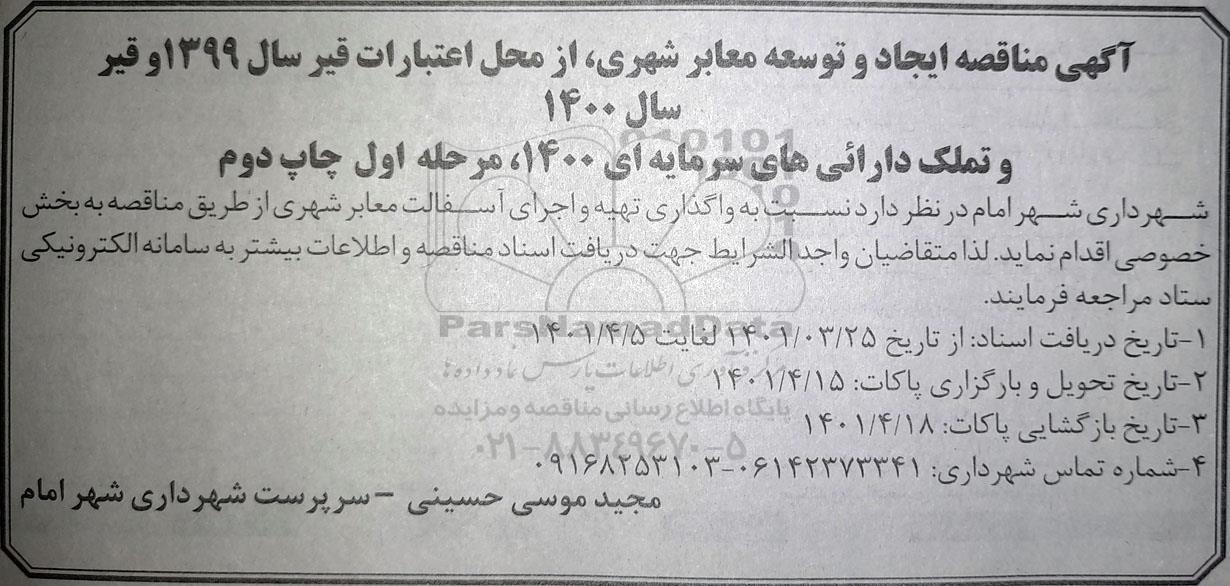 آگهی مناقصه ایجاد و توسعه معابر شهری، از محل اعتبارات قیر سال ۱۳۹۹و قیر
سال ۱۴۰۰
و تملک دارائی های سرمایه ای ۱۴۰۰، مرحله اول چاپ دوم
شهرداری شهر امام در نظر دارد نسبت به واگذاری تهیه و اجرای آسفالت معابر شهری از طریق مناقصه به بخش
خصوصی اقدام نماید. لذا متقاضیان واجد الشرایط جهت دریافت اسناد مناقصه و اطلاعات بیشتر به سامانه الکترونیکی
ستاد مراجعه فرمایند.
۱-تاریخ دریافت اسناد: از تاریخ ۱۴۰۱/۰۳/۲۵ لغایت ۱۴۰۱/۴/۵
۲-تاریخ تحویل و بارگزاری پاکات: ۱۴۰۱/۴/۱۵
۳-تاریخ بازگشایی پاکات: ۱۴۰۱/۴/۱۸
۴-شماره تماس شهرداری: ۰۶۱۴۲۳۷۳۳۴۱-۰۹۱۶۸۲۵۳۱۰۳
مجید موسی حسینی -سرپرست شهرداری شهر امام
ParsNamadData
پایگاه اطلاع رسانی مناقصه و مزایده
۰۲۱-۸۸۳۴۹۶۷۰-۵